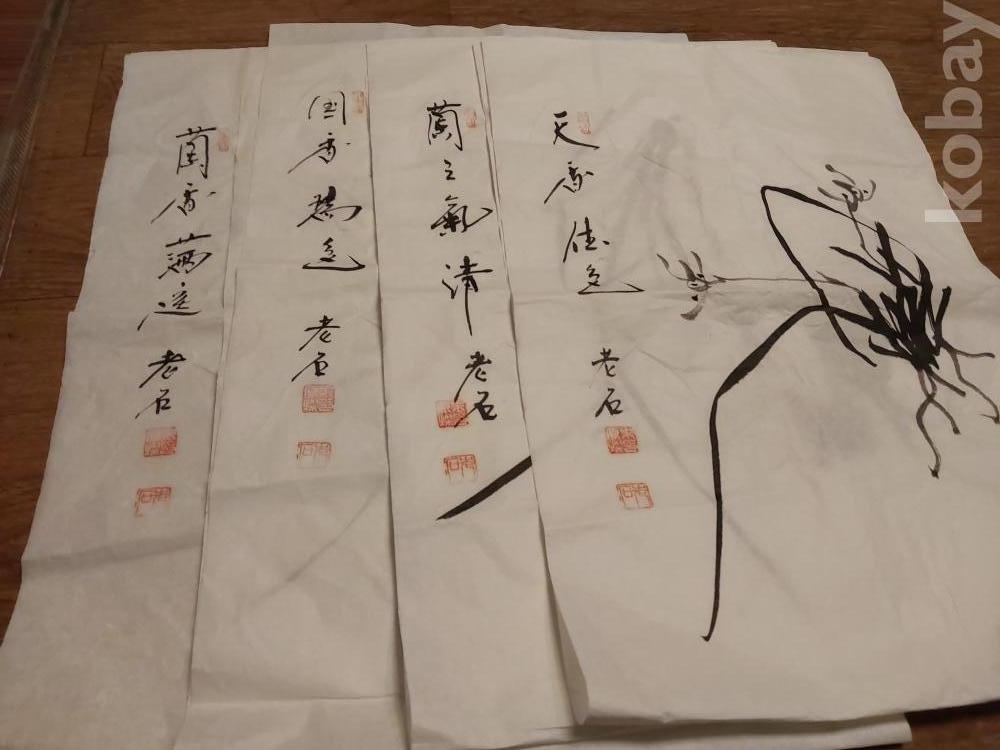 天香佳色
老石
蘭之氣清
老石
国香
老石
蘭香滿庭
老石
kobay